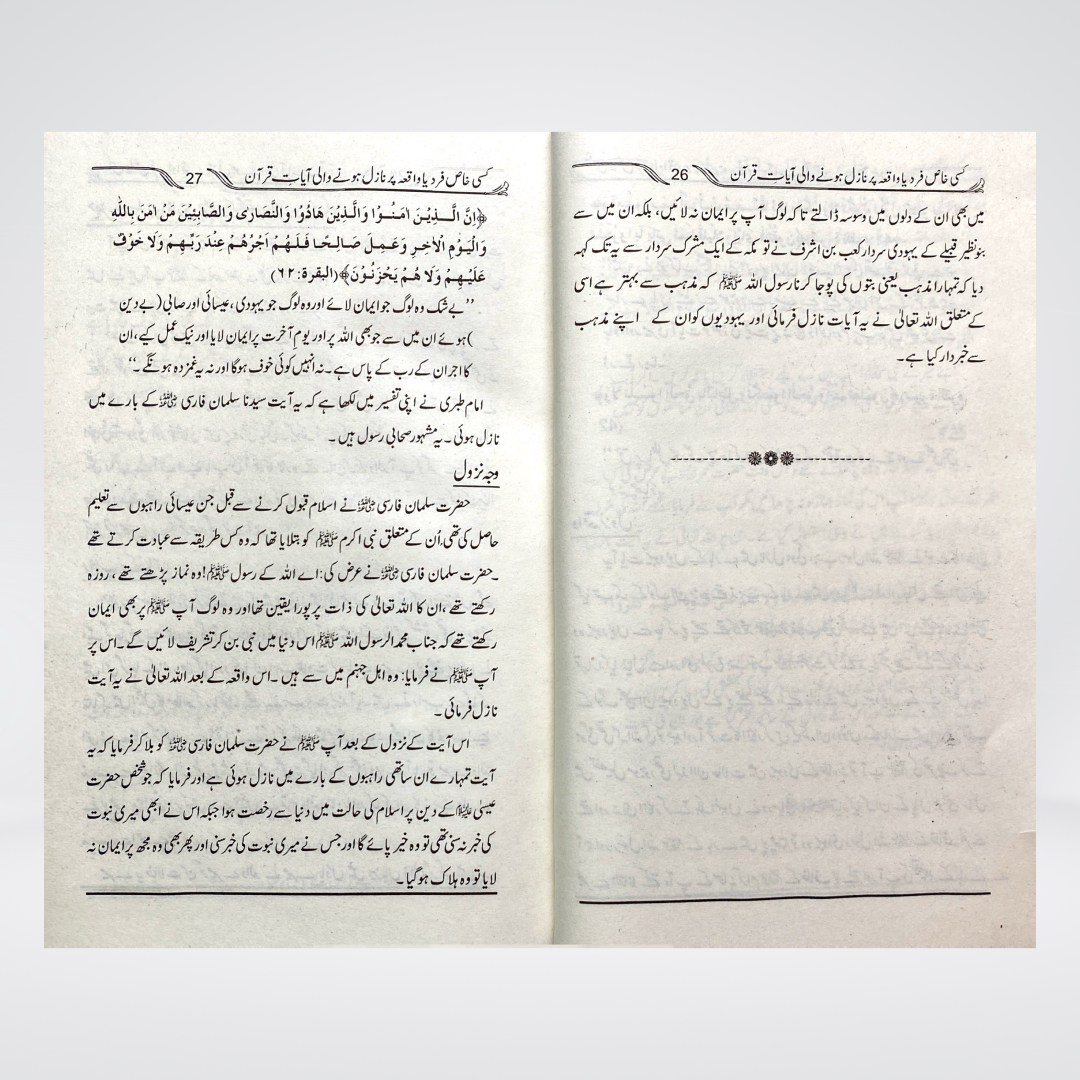 کسی خاص فرد یا واقعہ پر نازل ہونے والی آیات قرآن 26
میں بھی ان کے دلوں میں وسوسہ ڈالتے تا کہ لوگ آپ پر ایمان نہ لائیں، بلکہ ان میں سے
بنو نظیر قبیلے کے یہودی سردار کعب بن اشرف نے تو مکہ کے ایک مشرک سردار سے یہ تک کہہ
دیا کہ تمہارا مذہب یعنی بتوں کی پوجا کرنا رسول اللہ ﷺ کہ مذہب سے بہتر ہے اسی
کے متعلق اللہ تعالیٰ نے یہ آیات نازل فرمائی اور یہودیوں کو ان کے اپنے مذہب
سے خبردار کیا ہے۔
کسی خاص فرد یا واقعہ پر نازل ہونے والی آیات قرآن 27
﴿اِنَّ الَّـذِيْنَ اٰمَنُـوْا وَالَّـذِيْنَ هَادُوْا وَالنَّصَارٰى وَالصَّابِئِيْنَ مَنْ اٰمَنَ بِاللّٰهِ
وَالْيَوْمِ الْاٰخِرِ وَعَمِـلَ صَالِـحًا فَلَـهُمْ اَجْرُهُـمْ عِنْدَ رَبِّـهِـمْ وَلَا خَوْفٌ
عَلَيْـهِـمْ وَلَا هُـمْ يَحْزَنُـوْنَ﴾(البقرة:٦٢)
’’بے شک وہ لوگ جو ایمان لائے اور وہ لوگ جو یہودی، عیسائی اور صابی (بے دین
) ہوئے ان میں سے جو بھی اللہ پر اور یوم آخرت پر ایمان لایا اور نیک عمل کیے، ان
کا اجر ان کے رب کے پاس ہے۔ نہ انہیں کوئی خوف ہوگا اور نہ یہ غمزدہ ہونگے۔‘‘
امام طبری نے اپنی تفسیر میں لکھا ہے کہ یہ آیت سیدنا سلمان فارسی رضی اللہ عنہ کے بارے میں
نازل ہوئی۔ یہ مشہور صحابی رسول ہیں۔
وجہ نزول
حضرت سلمان فارسی رضی اللہ عنہ نے اسلام قبول کرنے سے قبل جن عیسائی راہبوں سے تعلیم
حاصل کی تھی، اُن کے متعلق نبی اکرم ﷺ کو بتلایا تھا کہ وہ کس طریقہ سے عبادت کرتے تھے
۔ حضرت سلمان فارسی رضی اللہ عنہ نے عرض کی: اے اللہ کے رسول ﷺ! وہ نماز پڑھتے تھے، روزہ
رکھتے تھے، ان کا اللہ تعالیٰ کی ذات پر پورا یقین تھا اور وہ لوگ آپ ﷺ پر بھی ایمان
رکھتے تھے کہ جناب محمد الرسول اللہ ﷺ اس دنیا میں نبی بن کر تشریف لائیں گے۔ اس پر
آپ ﷺ نے فرمایا: وہ اہل جہنم میں سے ہیں۔ اس واقعہ کے بعد اللہ تعالیٰ نے یہ آیت
نازل فرمائی۔
اس آیت کے نزول کے بعد آپ ﷺ نے حضرت سلمان فارسی رضی اللہ عنہ کو بلا کر فرمایا کہ یہ
آیت تمہارے ان ساتھی راہبوں کے بارے میں نازل ہوئی ہے اور فرمایا کہ جو شخص حضرت
عیسیٰ علیہ السلام کے دین پر اسلام کی حالت میں دنیا سے رخصت ہوا جبکہ اس نے ابھی میری نبوت
کی خبر نہ سنی تھی تو وہ خیر پائے گا اور جس نے میری نبوت کی خبر سنی اور پھر بھی وہ مجھ پر ایمان نہ
لایا تو وہ ہلاک ہو گیا۔